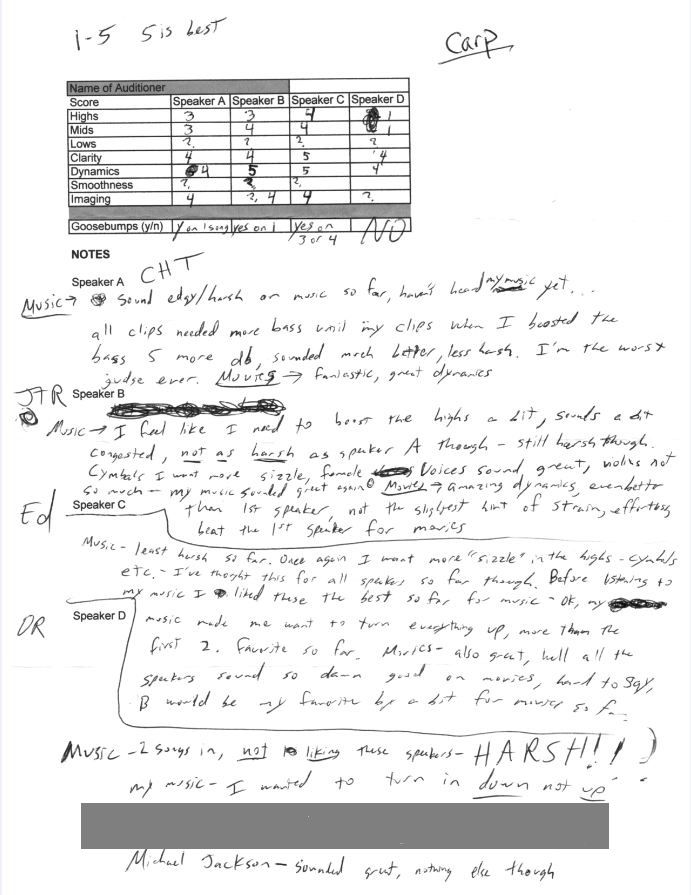 1-5 5 is best
Carp
Name of Auditioner
Score Speaker A Speaker B Speaker C Speaker D
Highs 3 3 4 1
Mids 3 4 4 1
Lows ? ? ? ?
Clarity 4 4 5 4
Dynamics 4 5 5 4
Smoothness ? ? ?
Imaging 4 ?, 4 4 ?
Goosebumps (y/n) y on 1 song yes on 1 yes on 3 or 4 NO
NOTES
Speaker A CHT
Music → Sound edgy/harsh on music so far, haven't heard my music yet...
all clips needed more bass until my clips when I boosted the
bass 5 more db, sounded much better, less harsh. I'm the worst
judge ever. Movies → fantastic, great dynamics
JTR Speaker B
Music → I feel like I need to boost the highs a bit, sounds a bit
congested, not as harsh as speaker A though - still harsh though.
Cymbals I want more sizzle, female voices sound great, violins not
so much - my music sounded great again Movies → amazing dynamics, even better
Ed Speaker C than 1st speaker, not the slightest hint of strain, effortless,
beat the 1st speaker for movies
Music - least harsh so far. Once again I want more "sizzle" in the highs - cymbals
etc. - I've thought this for all speakers so far though. Before listening to
my music I liked these the best so far for music - OK, my
DR Speaker D music made me want to turn everything up, more than the
first 2. Favorite so far. Movies - also great, hell all the
speakers sound so damn good on movies, hard to say,
B would be my favorite by a bit for movies so far
Music - 2 songs in, not liking these speakers - HARSH!!
my music - I wanted to turn in down not up
Michael Jackson - sounded great, nothing else though